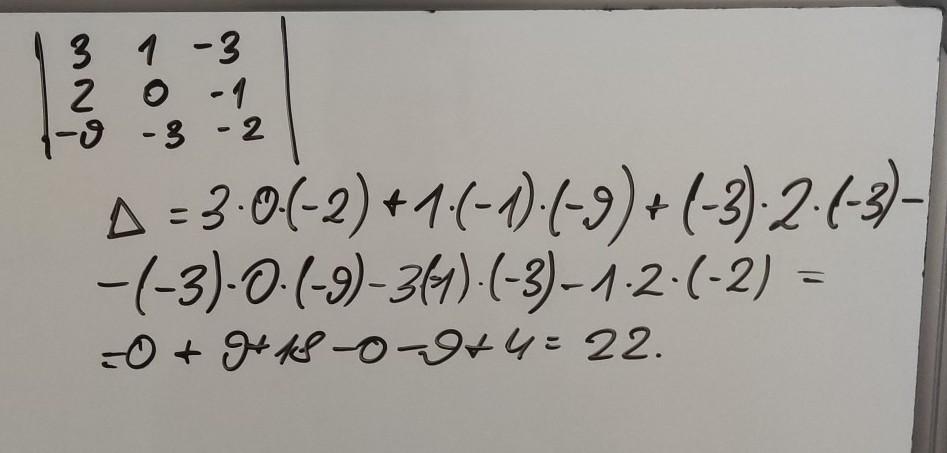 | 3 1 -3 |
| 2 0 -1 |
| -9 -3 -2 |
Δ = 3·0·(-2) + 1·(-1)·(-9) + (-3)·2·(-3) -
-(-3)·0·(-9) - 3(-1)·(-3) - 1·2·(-2) =
=0 + 9+18 -0 -9+4 = 22.